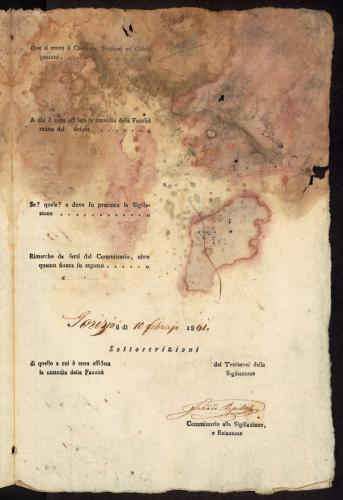 Ove si trova il Contante, Preziosi ed Obbli-
gazioni . . . . . . . . . . . „
A chi è stata affidata la custodia della Facoltà
mobile del defunto . . . . . . . „
Se? quale? e dove fu praticata la Sigilla-
zione . . . . . . . . . . . . „
Rimarche da farsi dal Commissario, oltre
quanto finora fu esposto . . . . . . „
Gorizia di 10 febrajo 1841.
Sottoscrizioni
di quello a cui è stata affidata
la custodia della Facoltà
dei Testimoni della
Sigillazione
Commissario alla Sigillazione,
e Relazione